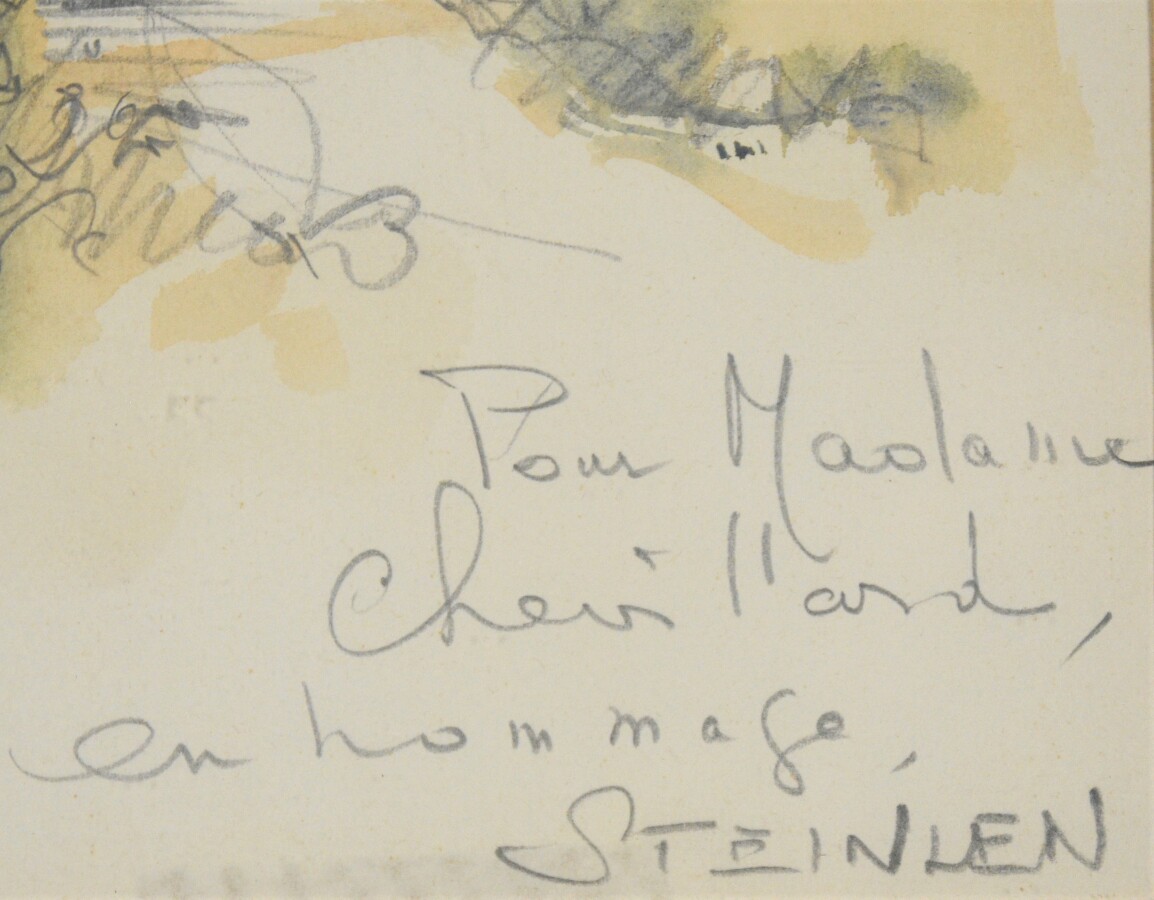 Pour Madame
Chevillard,
en hommage,
STEINLEN